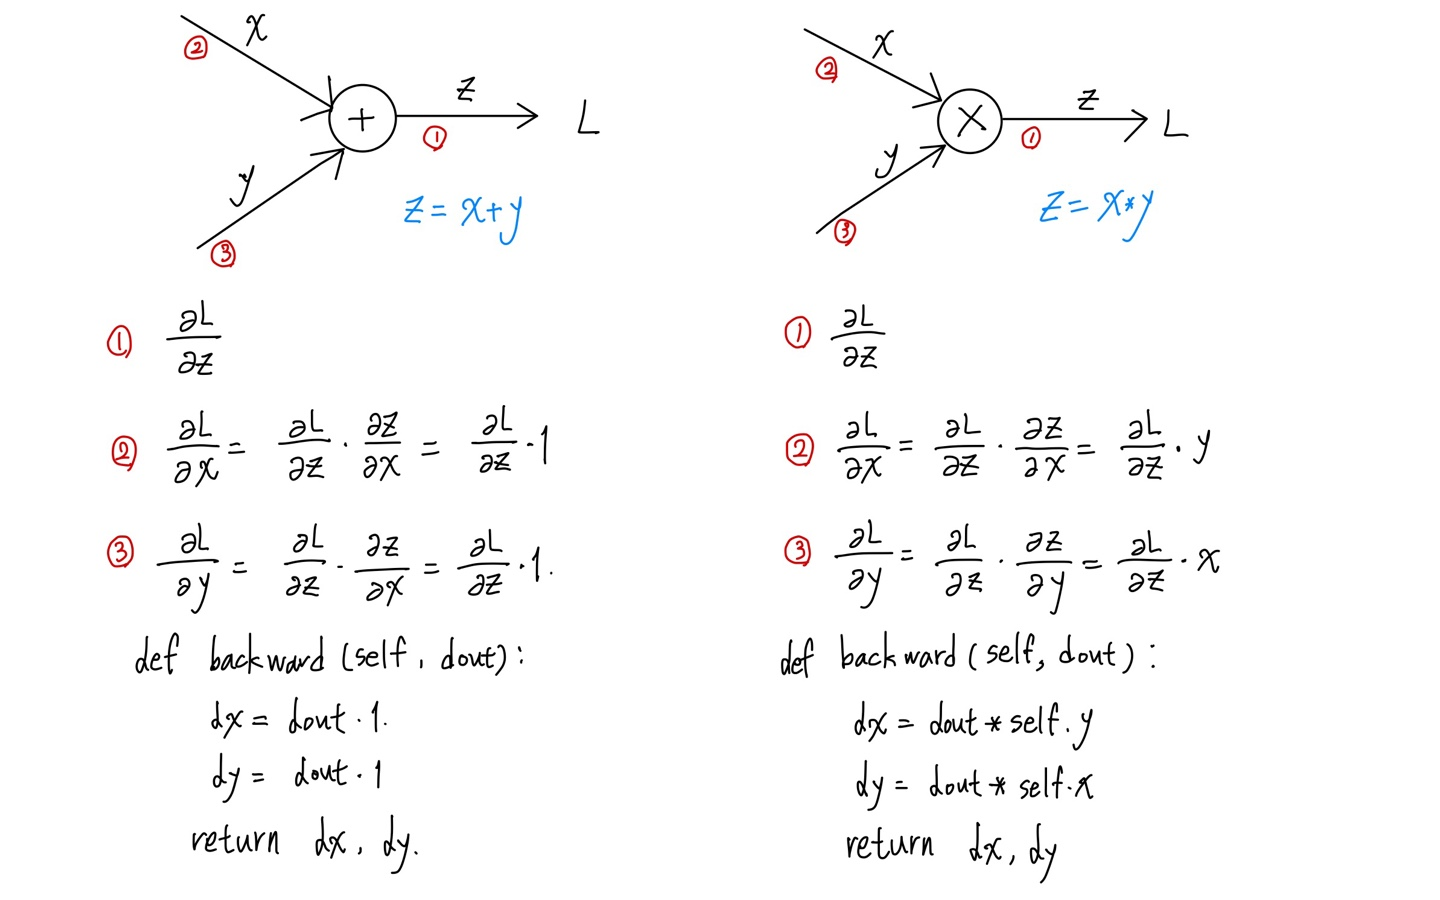 x
②
+
z
①
L
y
③
z = x+y
① ∂L/∂z
② ∂L/∂x = ∂L/∂z · ∂z/∂x = ∂L/∂z · 1
③ ∂L/∂y = ∂L/∂z · ∂z/∂x = ∂L/∂z · 1.
def backward (self, dout):
dx = dout · 1.
dy = dout · 1
return dx, dy.
x
②
×
z
①
L
y
③
z = x*y
① ∂L/∂z
② ∂L/∂x = ∂L/∂z · ∂z/∂x = ∂L/∂z · y
③ ∂L/∂y = ∂L/∂z · ∂z/∂y = ∂L/∂z · x
def backward (self, dout):
dx = dout * self.y
dy = dout * self.x
return dx, dy